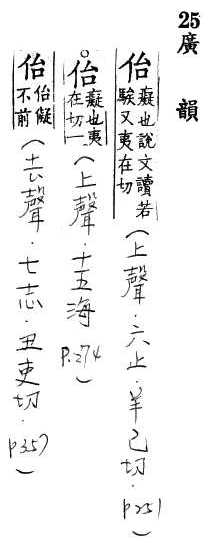 25廣韻
佁癡也說文讀若騃又夷在切(上聲．六止．羊己切．P251)
。佁癡也夷在切一(上聲．十五海P.274)
佁佁儗不前(去聲．七志．丑吏切．P357)